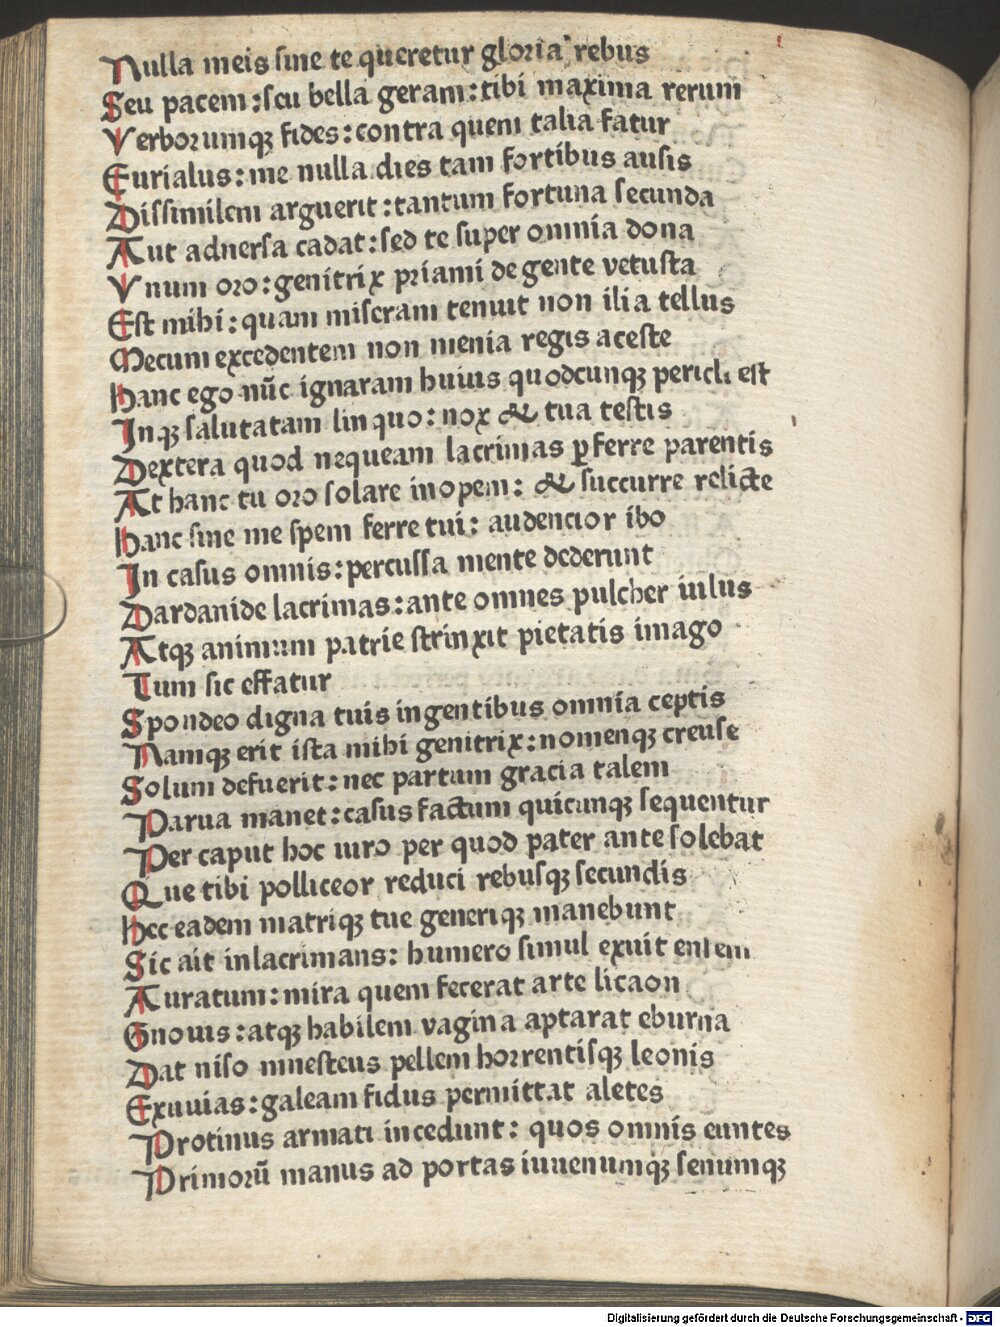 Nulla meis sine te queretur gloria rebus
Seu pacem : seu bella geram : tibi maxima rerum
Verborumqꝫ fides : contra quem talia fatur
Eurialus : me nulla dies tam fortibus ausis
Dissimilem arguerit : tantum fortuna secunda
Aut aduersa cadat : sed te super omnia dona
Vnum oro : genitrix priami de gente vetusta
Est mihi : quam miseram tenuit non ilia tellus
Mecum excedentem non menia regis aceste
Hanc ego nūc ignaram huius quodcunqꝫ pericli est
Inqꝫ salutatam linquo : nox & tua testis
Dextera quod nequeam lacrimas ꝑferre parentis
At hanc tu oro solare inopem : & succurre relicte
Hanc sine me spem ferre tui : audencior ibo
In casus omnis : percussa mente dederunt
Dardanide lacrimas : ante omnes pulcher iulus
Atqꝫ animum patrie strinxit pietatis imago
Tum sic effatur
Spondeo digna tuis ingentibus omnia ceptis
Namqꝫ erit ista mihi genitrix : nomenqꝫ creuse
Solum defuerit : nec partum gracia talem
Parua manet : casus factum quicunqꝫ sequentur
Per caput hoc iuro per quod pater ante solebat
Que tibi polliceor reduci rebusqꝫ secundis
Hec eadem matriqꝫ tue generiqꝫ manebunt
Sic ait inlacrimans : humero simul exuit ensem
Auratum : mira quem fecerat arte licaon
Gnouis : atqꝫ habilem vagina aptarat eburna
Dat niso mnesteus pellem horrentisqꝫ leonis
Exuuias : galeam fidus permittat aletes
Protinus armati incedunt : quos omnis euntes
Primorū manus ad portas iuuenumqꝫ senumqꝫ
Digitalisierung gefördert durch die Deutsche Forschungsgemeinschaft - DFG